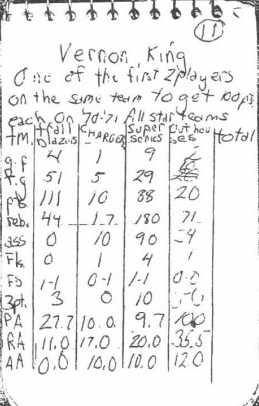 11
Vernon King
One of the first 2players
on the same team to get 100pts
each on 70-71 All star teams
TM. Trail Blazers Chargers Super sonics total
g.f 4 1 9
f.g 51 5 29
pts 111 10 88 20
reb. 44 17 180 71
ass 0 10 90
Fk. 0 1 4 1
Fs 1-1 0-1 1-1 0-0
3pt. 3 0 10
PA 27.7 10.0 9.7
RA 11.0 17.0 20.0 35.5
AA 0.0 10.0 10.0 12.0